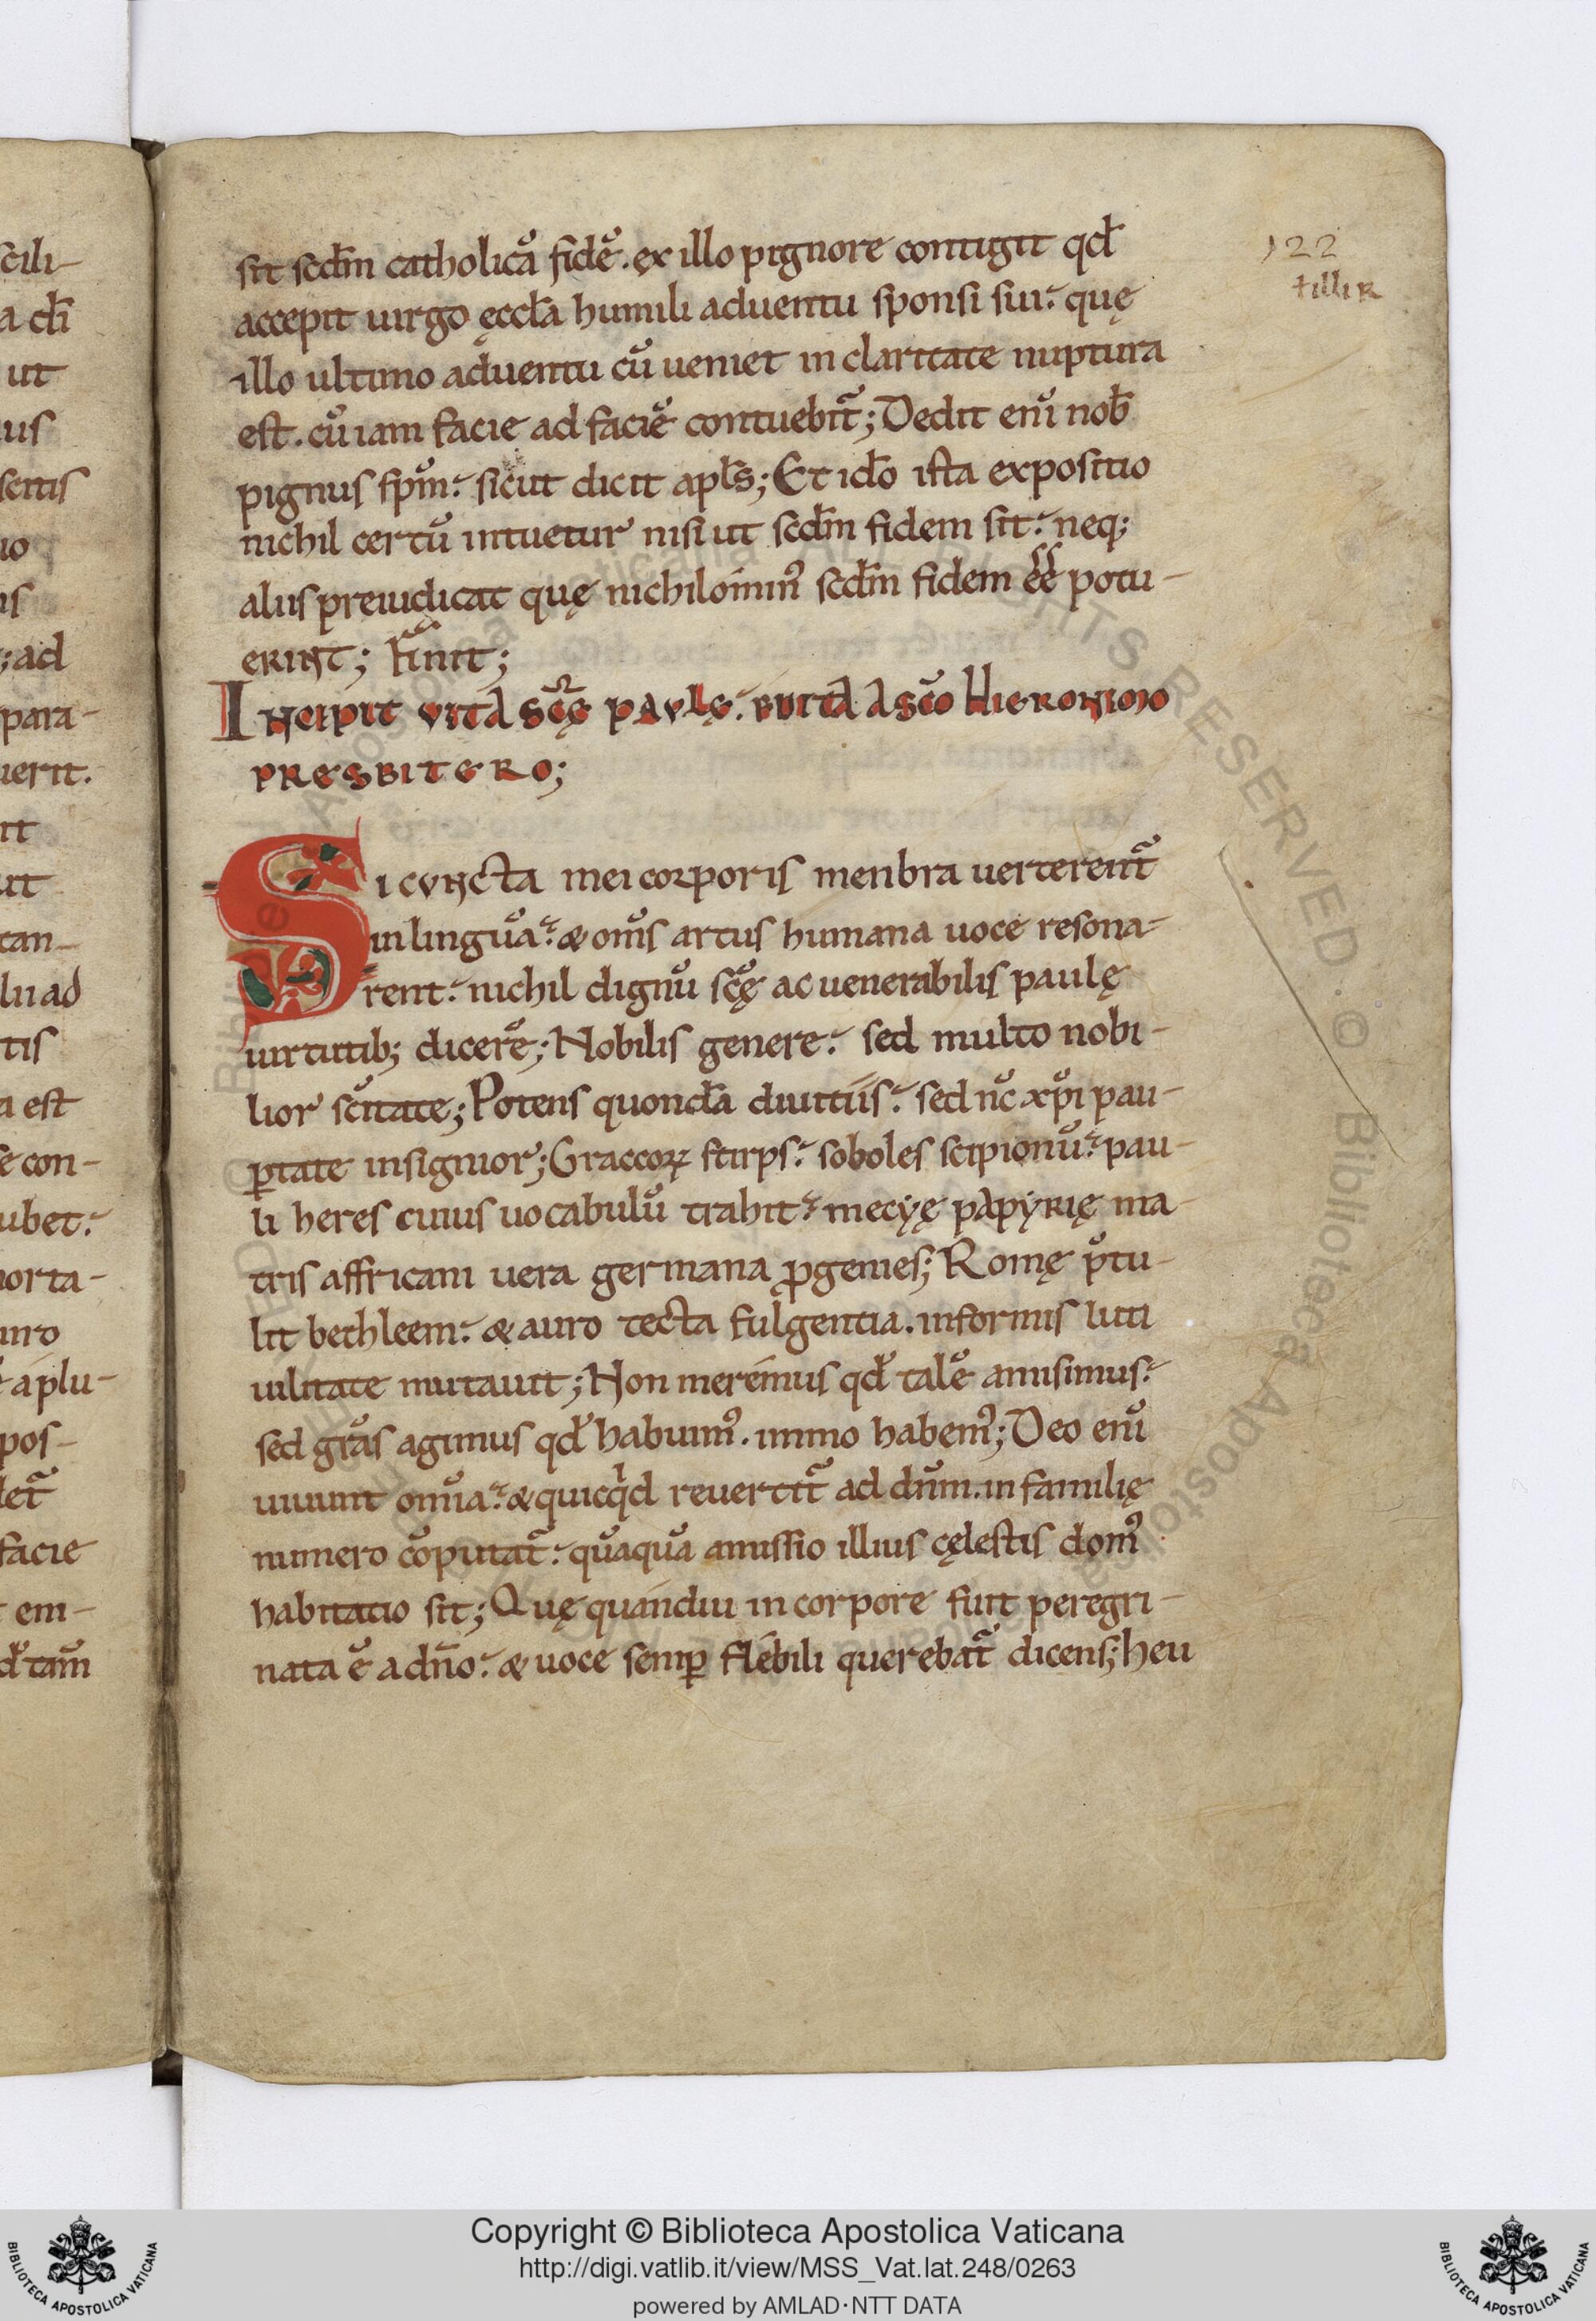 sit scdm catholicā fidē. ex illo pignore contigit qd
accepit uirgo ęccła humili aduentu sponsi sui. quę
illo ultimo aduentu cū ueniet in claritate nuptura
est. cū iam facie ad faciē contuebit; Dedit enī nob
pignus spm. sicut dicit apls; Et ido ista expositio
nichil certū intuetur nisi ut scdm fidem sit. neq;
aliis preiudicat quę nichilomin' scdm fidem ēē potu-
erint; Finit;
INCIPIT VITA SCĘ PAVLĘ. EDITA A SCO HIERONIMO
PRESBITERO;
SI CVNCTA mei corporis menbra uerterent
in linguā. & oms artus humana uoce resona-
rent. nichil dignū scę ac uenerabilis paulę
uirtutib; dicerē; Nobilis genere. sed multo nobi-
lior scitate; Potens quondā diuitiis. sed nc xpi pau-
ptate insignior; Graccoꝝ stirps. soboles scipionū. pau-
li heres cuius uocabulū trahit. mecyę papyrię ma-
tris affricani uera germana ꝓgenies; Romę p̄tu-
lit bethleem. & auro tecta fulgentia. informis luti
uilitate mutauit; Non meremus qd talē amisimus.
sed gras agimus qd habuim'. immo habem'; Deo enī
uiuunt omīa. & quicqd reuertit ad dnm. in familię
numero cōputat. quāquā amissio illius cęlestis dom'
habitatio sit; Quę quandiu in corpore fuit peregri-
nata ē a dno. & uoce semp flebili querebat dicens; heu
122
scili-
a dī
ut
ius
sentis
uo
is
; ad
para-
uerit.
it
ut
tan-
lii ad
tis
a est
se con-
ubet.
orta-
a plu-
pos-
let
facie
em-
d tam
© Biblioteca Apostolica Vaticana ALL RIGHTS RESERVED
Copyright © Biblioteca Apostolica Vaticana
http://digi.vatlib.it/view/MSS_Vat.lat.248/0263
powered by AMLAD·NTT DATA
BIBLIOTECA APOSTOLICA VATICANA
BIBLIOTECA APOSTOLICA VATICANA